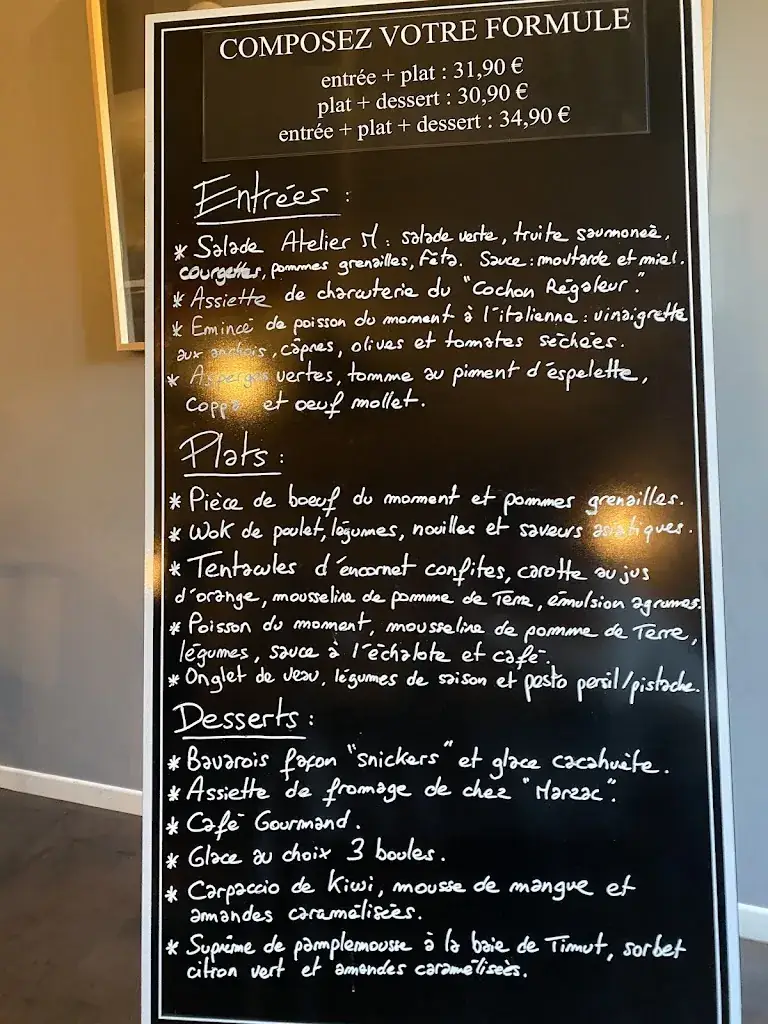 COMPOSEZ VOTRE FORMULE
entrée + plat : 31,90 €
plat + dessert : 30,90 €
entrée + plat + dessert : 34,90 €
Entrées :
* Salade Atelier M : salade verte, truite saumonée,
courgettes, pommes grenailles, fêta. Sauce : moutarde et miel.
* Assiette de charcuterie du "Cochon Régaleur".
* Emincé de poisson du moment à l'italienne : vinaigrette
aux anchois, câpres, olives et tomates séchées.
* Asperges vertes, tomme au piment d'éspelette,
coppa et oeuf mollet.
Plats :
* Pièce de boeuf du moment et pommes grenailles.
* Wok de poulet, légumes, nouilles et saveurs asiatiques.
* Tentacules d'encornet confites, carotte au jus
d'orange, mousseline de pomme de Terre, émulsion agrumes.
* Poisson du moment, mousseline de pomme de Terre,
légumes, sauce à l'échalote et café.
* Onglet de veau, légumes de saison et pesto persil/pistache.
Desserts :
* Bavarois façon "snickers" et glace cacahuète.
* Assiette de fromage de chez "Marzac".
* Café Gourmand.
* Glace au choix 3 boules.
* Carpaccio de Kiwi, mousse de mangue et
amandes caramélisées.
* Suprême de pamplemousse à la baie de Timut, sorbet
citron vert et amandes caramélisées.